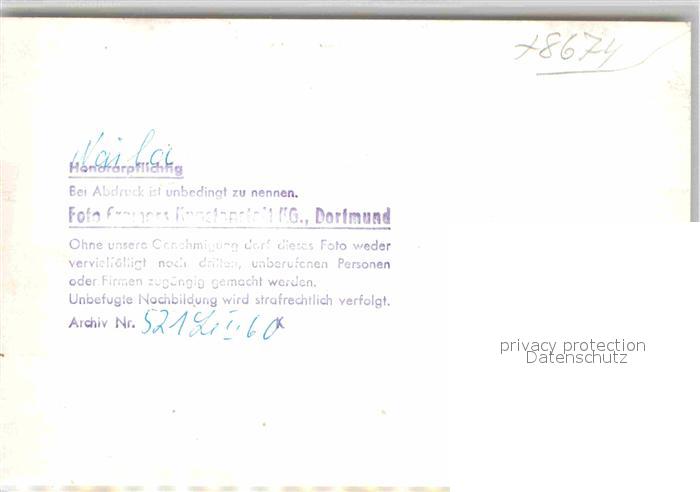 78674
Naila
Honorarpflichtig
Bei Abdruck ist unbedingt zu nennen.
Foto Cramers Kunstanstalt KG., Dortmund
Ohne unsere Genehmigung darf dieses Foto weder
vervielfältigt noch dritten, unberufenen Personen
oder Firmen zugängig gemacht werden.
Unbefugte Nachbildung wird strafrechtlich verfolgt.
Archiv Nr. 521
privacy protection
Datenschutz